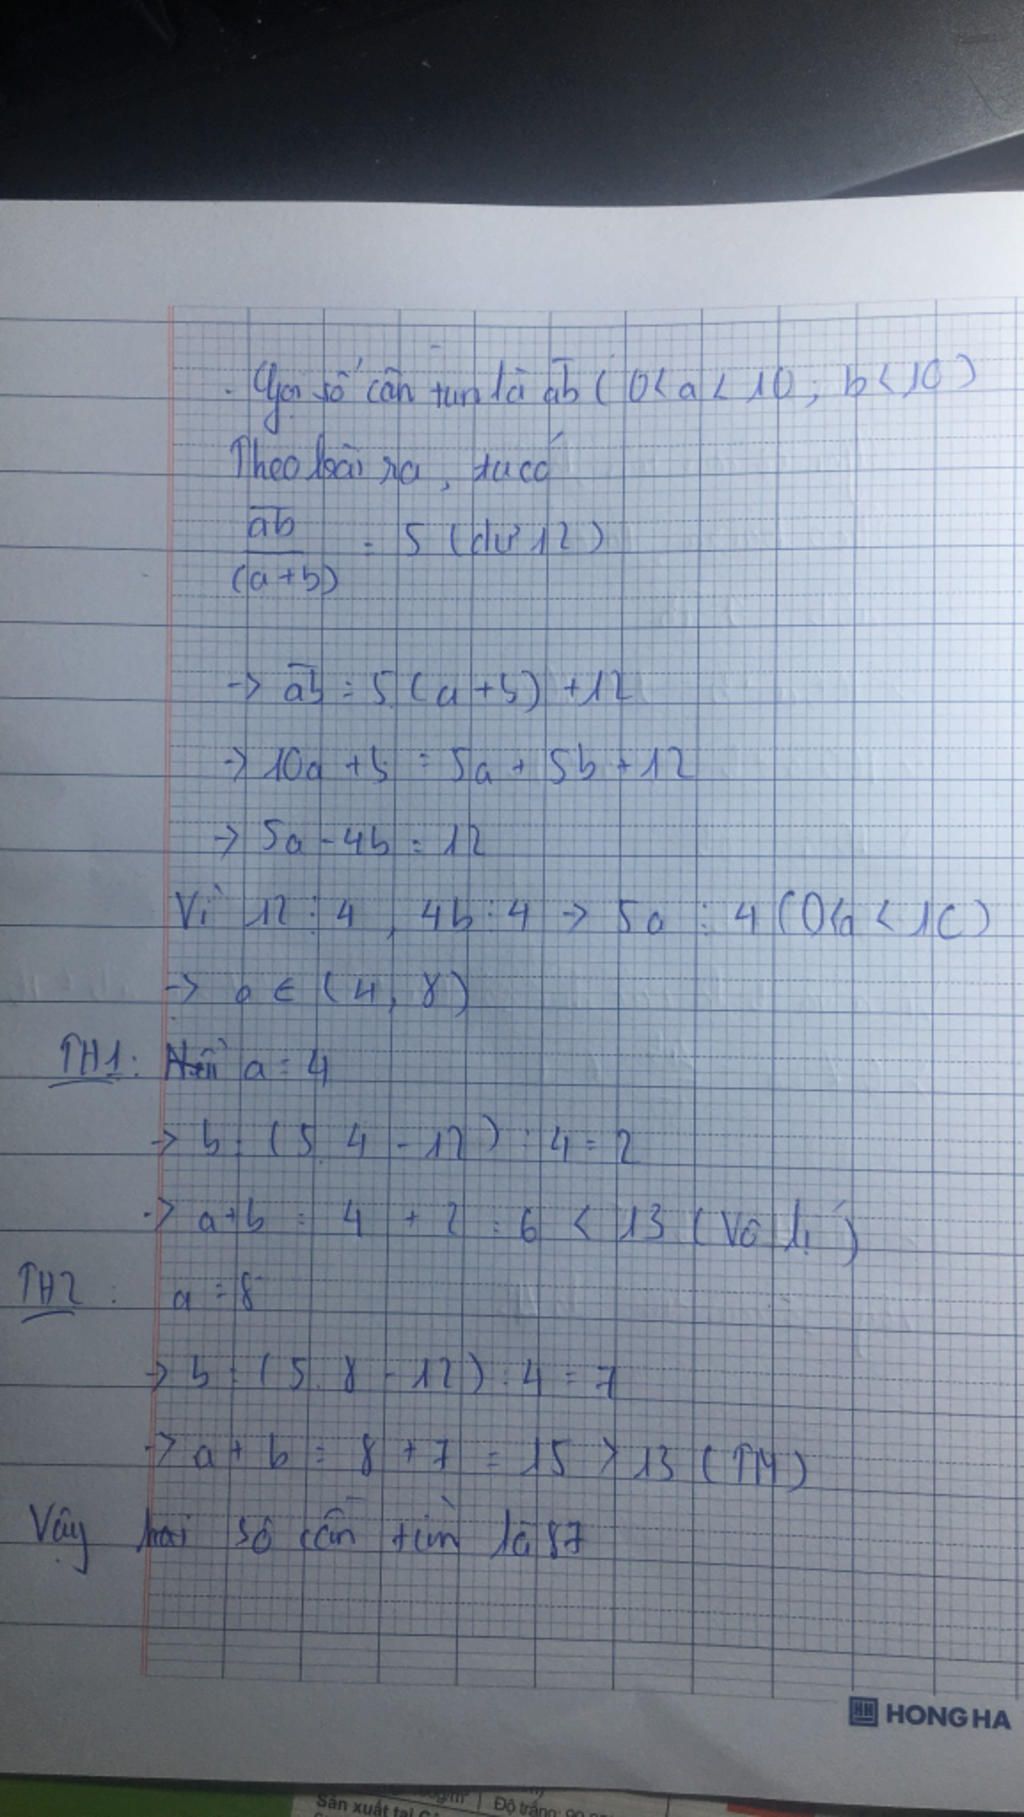 Gọi số cần tìm là ab̅ (0<a<10, b<10)
Theo bài ra, ta có
ab̅
(a+b)
= 5 (dư 12)
→ ab̅ = 5(a+b) +12
→ 10a + b = 5a + 5b + 12
→ 5a - 4b = 12
Vì 12 ⋮ 4, 4b ⋮ 4 → 5a ⋮ 4 (0<a<10)
→ a ∈ (4, 8)
TH1: Nếu a = 4
→ b = (5.4 - 12) : 4 = 2
→ a+b = 4 + 2 = 6 < 13 (Vô lí)
TH2: a = 8
→ b = (5.8 - 12) : 4 = 7
→ a + b = 8 + 7 = 15 > 13 (TM)
Vậy hai số cần tìm là 87
HH HONG HA
Độ trắng: 90
Sản xuất tại